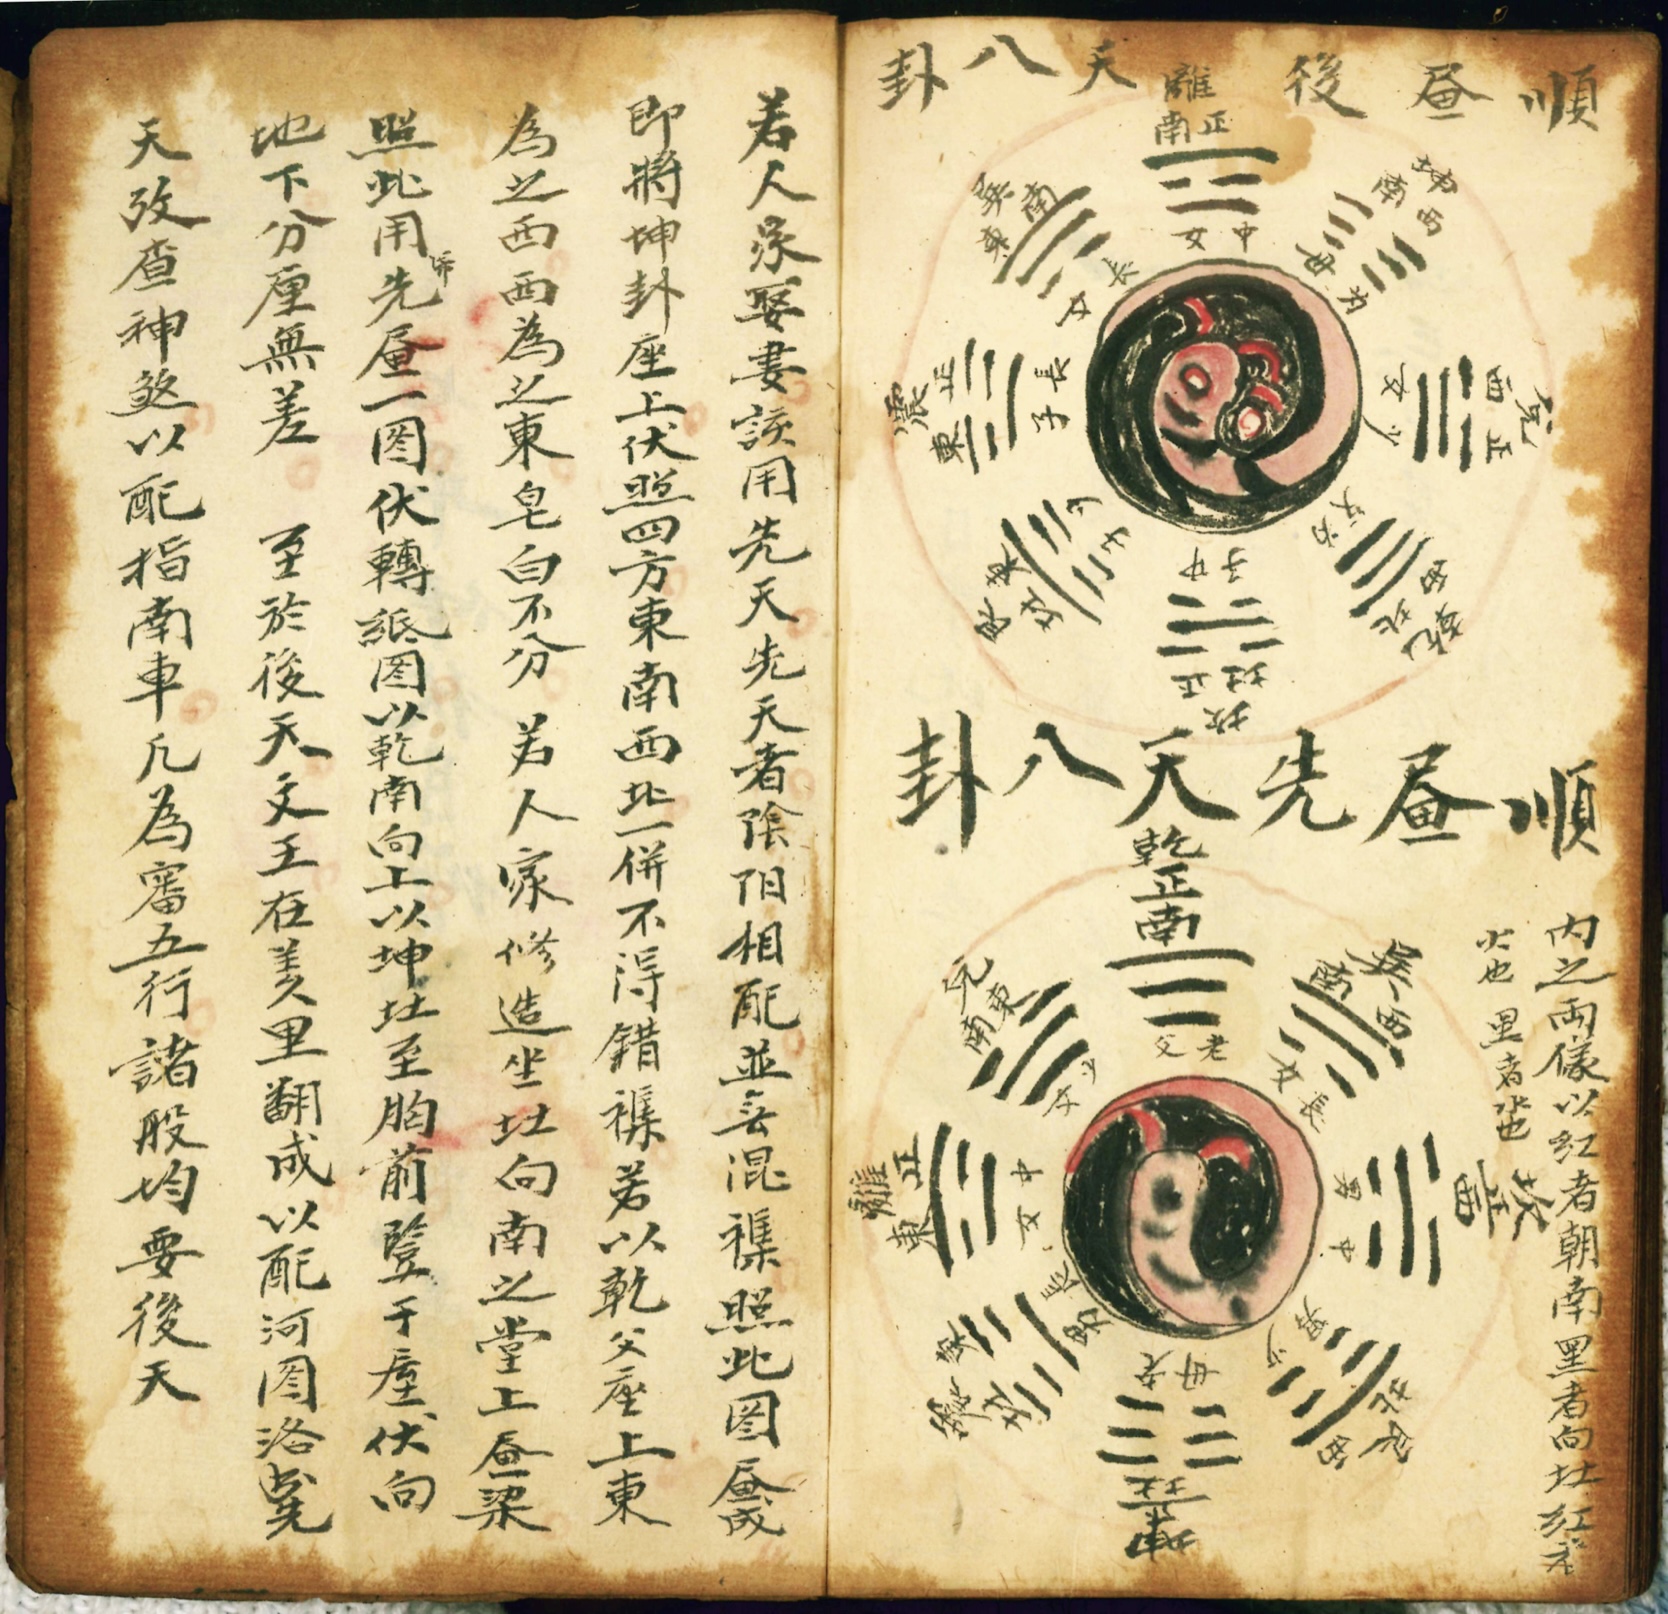 順 昼 後 天 八 卦
離
正南
中女
坤
西南
老母
兌
正西
少女
乾
西北
老父
坎
正北
中子
艮
東北
少子
震
正東
長子
巽
東南
長女
順 昼 先 天 八 卦
乾
正南
老父
巽
西南
長女
坎
正西
中男
艮
西北
少男
坤
正北
老母
震
東北
長男
離
正東
中女
兌
東南
少女
内之兩儀以紅者朝南黑者向北紅者
火也 黑者水也
若人家娶妻該用先天先天者陰阳相配並無混襍照此图昼成
即將坤卦座上伏照四方東南西北一併不得錯襍若以乾父座上東
為之西西為之東皂白不分 若人家修造坐北向南之堂上昼梁
照此用先昼一图伏轉紙图以乾南向上以坤北至胸前豎于座伏向
地下分厘無差 至於後天文王在羑里翻成以配河图洛
天攷查神煞以配指南車凡為審五行諸般均要後天